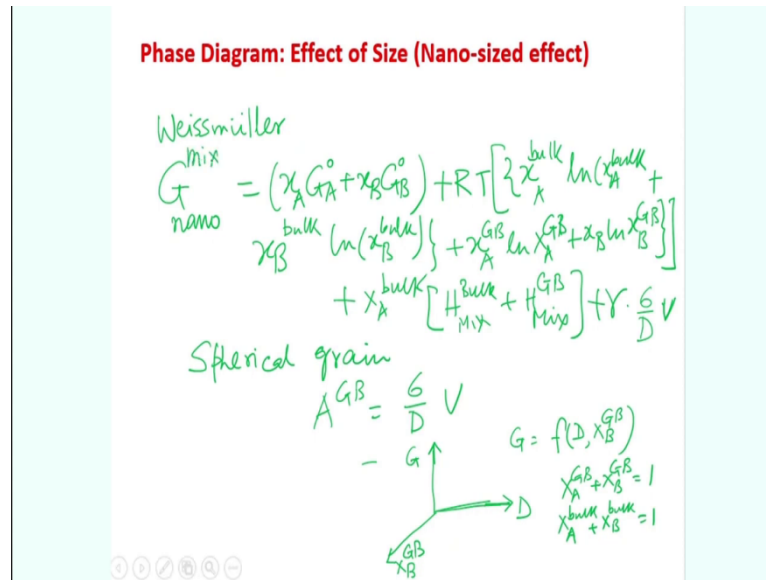 Phase Diagram: Effect of Size (Nano-sized effect)
Weissmüller
G^mix_nano = (x_A G_A° + x_B G_B°) + RT[{x_A^bulk ln(x_A^bulk +
x_B^bulk ln(x_B^bulk)} + x_A^GB ln x_A^GB + x_B ln x_B^GB}]
+ x_A^bulk [H_MIX^Bulk + H_Mix^GB] + γ. 6/D V
Spherical grain
A^GB = 6/D V
G = f(D, x_B^GB)
x_A^GB + x_B^GB = 1
x_A^bulk + x_B^bulk = 1
G
D
x_B^GB